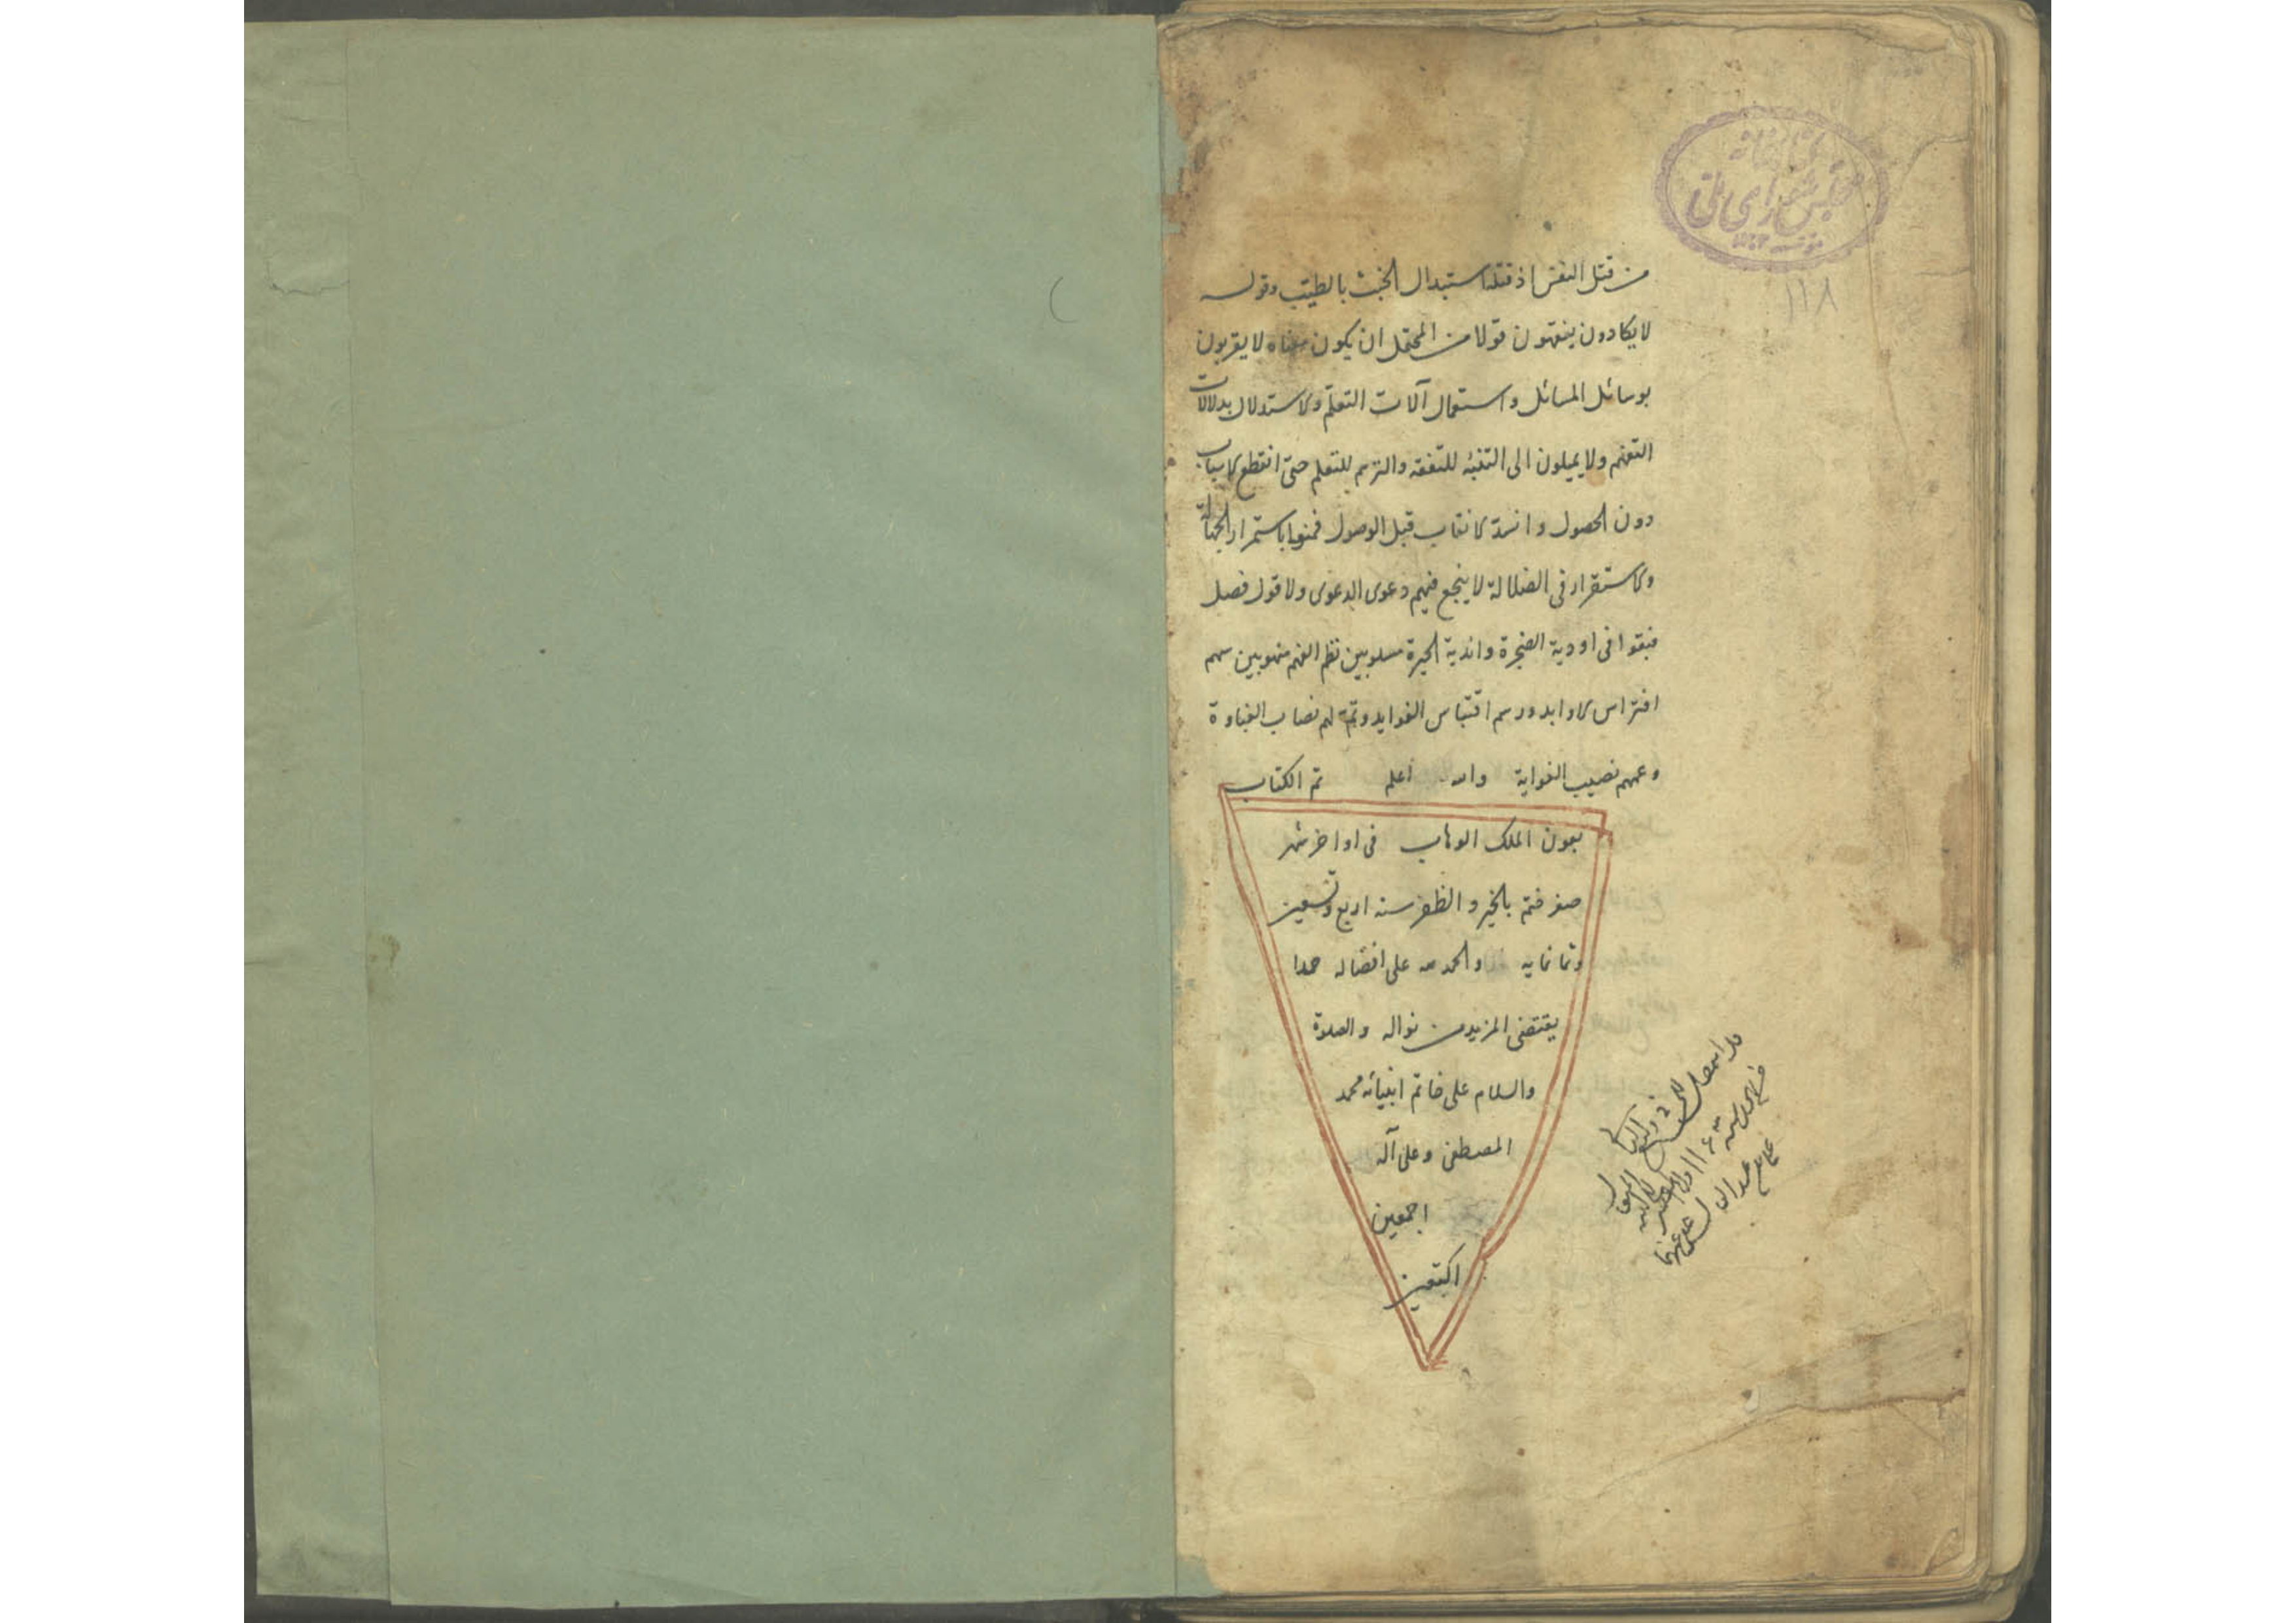 کتابخانه
مجلس شورای ملی
١١٨
من قتل النفس اذ قتلها استبدال الخبث بالطيّب وقوله
لا يكادون يفقهون قولا من المحتمل ان يكون معناه لا يقربون
بوسائل المسائل واستعمال آلات التعلّم والاستدلال بدلالات
التفهم ولا يميلون الى للتفقه والترسم للتعلم حتى انقطع الاسباب
دون الحصول وانسدّ الانقاب قبل الوصول فمنوا باستمرار الجهالة
والاستقرار فى الضلالة لا ينجع فيهم دعوى الدعوى ولا قول فصل
فبقوا فى اودية الضجرة واندية الحيرة مسلوبين نظم الفهم منهوبين سهم
افتراس الاوابد ورسم اقتباس الفوايد وتمّ لهم نصاب الغباوة
وعمهم نصيب الغواية والله اعلم تم الكتاب
بعون الملك الوهاب فى اواخر شهر
صفر ختم بالخير والظفر سنه اربع وتسعين
وثمانمايه والحمد لله على افضاله حمدا
يقتضى المزيد من نواله والصلوة
والسلام على خاتم انبيائه محمد
المصطفى وعلى آله
اجمعين
اكتعين